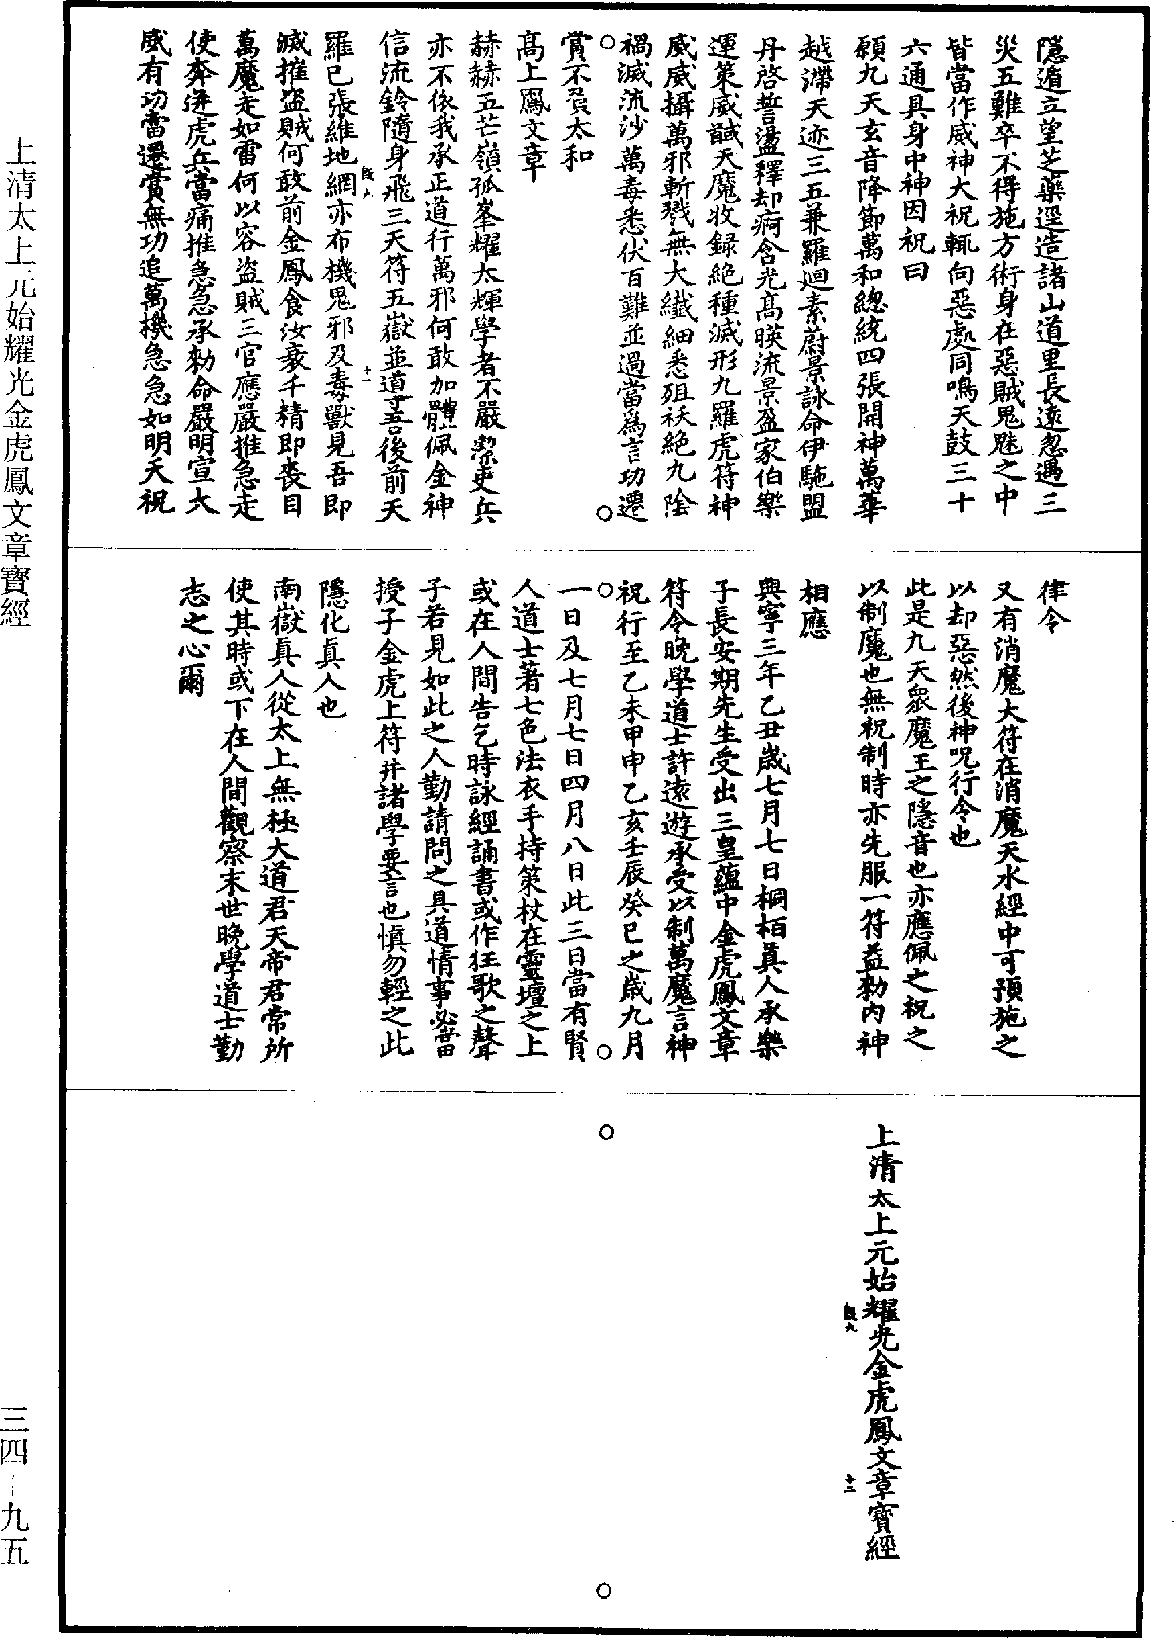 隱遁立望芝藥逕造諸山道里長遠忽遇三
災五難卒不得施方術身在惡賊鬼魅之中
皆當作威神大祝輒向惡處同鳴天鼓三十
六通具身中神因祝曰
願九天玄音降節萬和總統四張開神萬華
越滯天迹三五兼羅迴素蔚景詠命伊馳盟
丹啓誓盪釋却痾含光高暎流景盈家伯樂
運策威馘天魔收録絶種滅形九羅虎符神
威威攝萬邪斬戮無大纖細悉殂袄絶九陰
禍滅流沙萬毒悉伏百難並過當爲言功遷
賞不負太和
高上鳳文章
赫赫五芒嶺孤峯耀太輝學者不嚴潔吏兵
亦不依我承正道行萬邪何敢加體佩金神
信流鈴隨身飛三天符五嶽並導吾後前天
羅已張維地網亦布機鬼邪及毒獸見吾即
滅摧盜賊何敢前金鳳食汝衰千精即喪目
萬魔走如雷何以容盜賊三官應嚴推急走
使奔迸虎兵當痛推急急承勑命嚴明宣大
威有功當遷賞無功追萬機急急如明天祝
律令
又有消魔大符在消魔天水經中可預施之
以却惡然後神呪行令也
此是九天衆魔王之隱音也亦應佩之祝之
以制魔也無祝制時亦先服一符益勑內神
相應
興寧三年乙丑歲七月七日桐栢真人承樂
子長安期先生受出三皇蘊中金虎鳳文章
符令晚學道士許遠遊承受以制萬魔言神
祝行至乙未甲申乙亥壬辰癸巳之歲九月
一日及七月七日四月八日此三日當有賢
人道士著七色法衣手持策杖在靈壇之上
或在人間告乞時詠經誦書或作狂歌之聲
子若見如此之人勤請問之具道情事必當
授子金虎上符并諸學要言也慎勿輕之此
隱化真人也
南嶽真人從太上無極大道君天帝君常所
使其時或下在人間觀察末世晚學道士勤
志之心爾
上清太上元始耀光金虎鳳文章寶經
十一
十二
上清太上元始耀光金虎鳳文章寶經
三四－九五